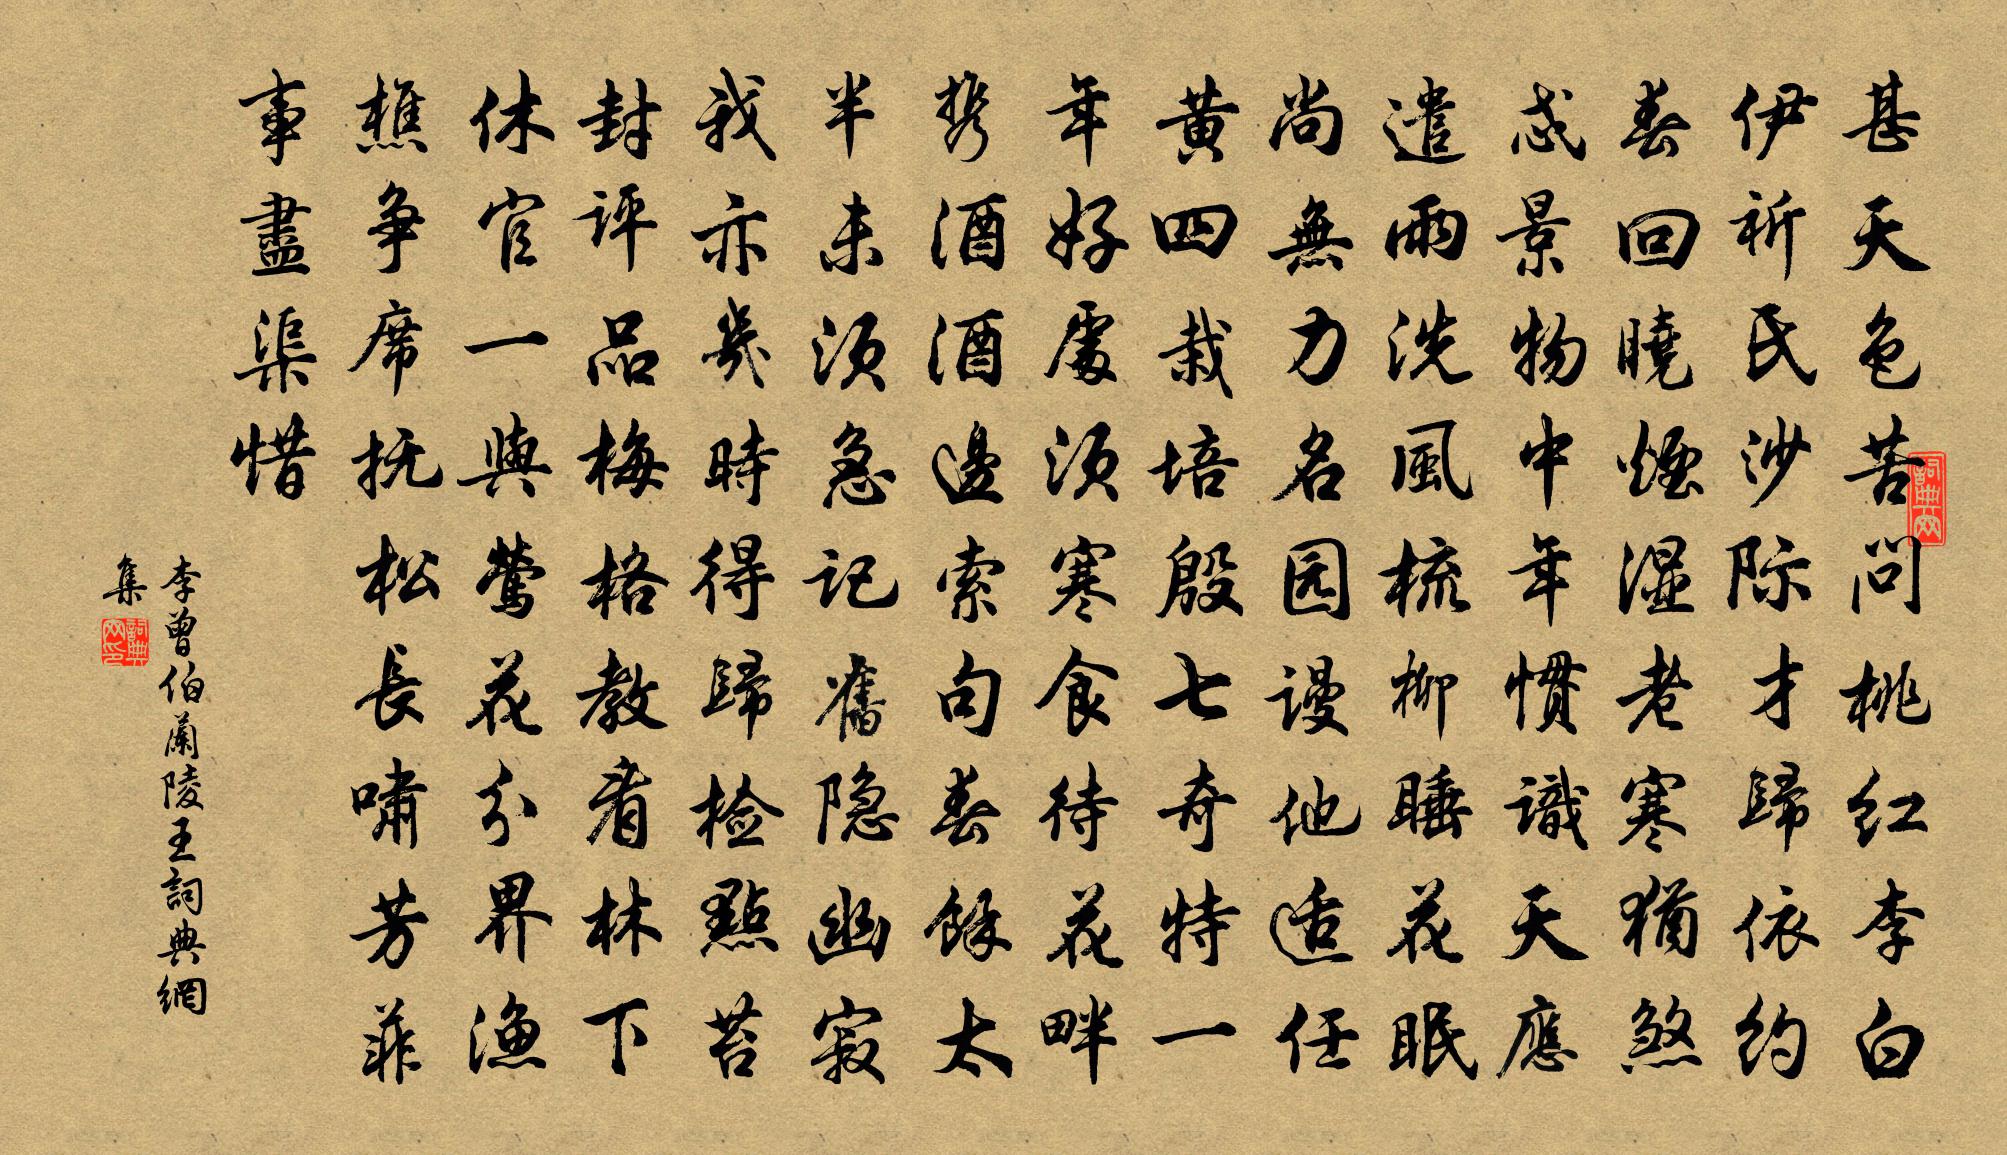 甚天色苦问桃红李白
伊祈氏沙际才歸依约
春回曉煙湿老寒猶煞
忒景物中年惯識天應
遣雨洗風梳柳睡花眠
尚無力名园谩他适任
黄四栽培殷七奇特一
年好處须寒食待花畔
携酒酒邊索句春餘太
半未须急记舊隐幽寂
我亦幾時得歸检點苔
封评品梅格教看林下
休官一與莺花分界渔
樵争席抚松長啸芳菲
事盡渠惜
李曾伯蘭陵王詞典網
集
詞典网
詞典网印